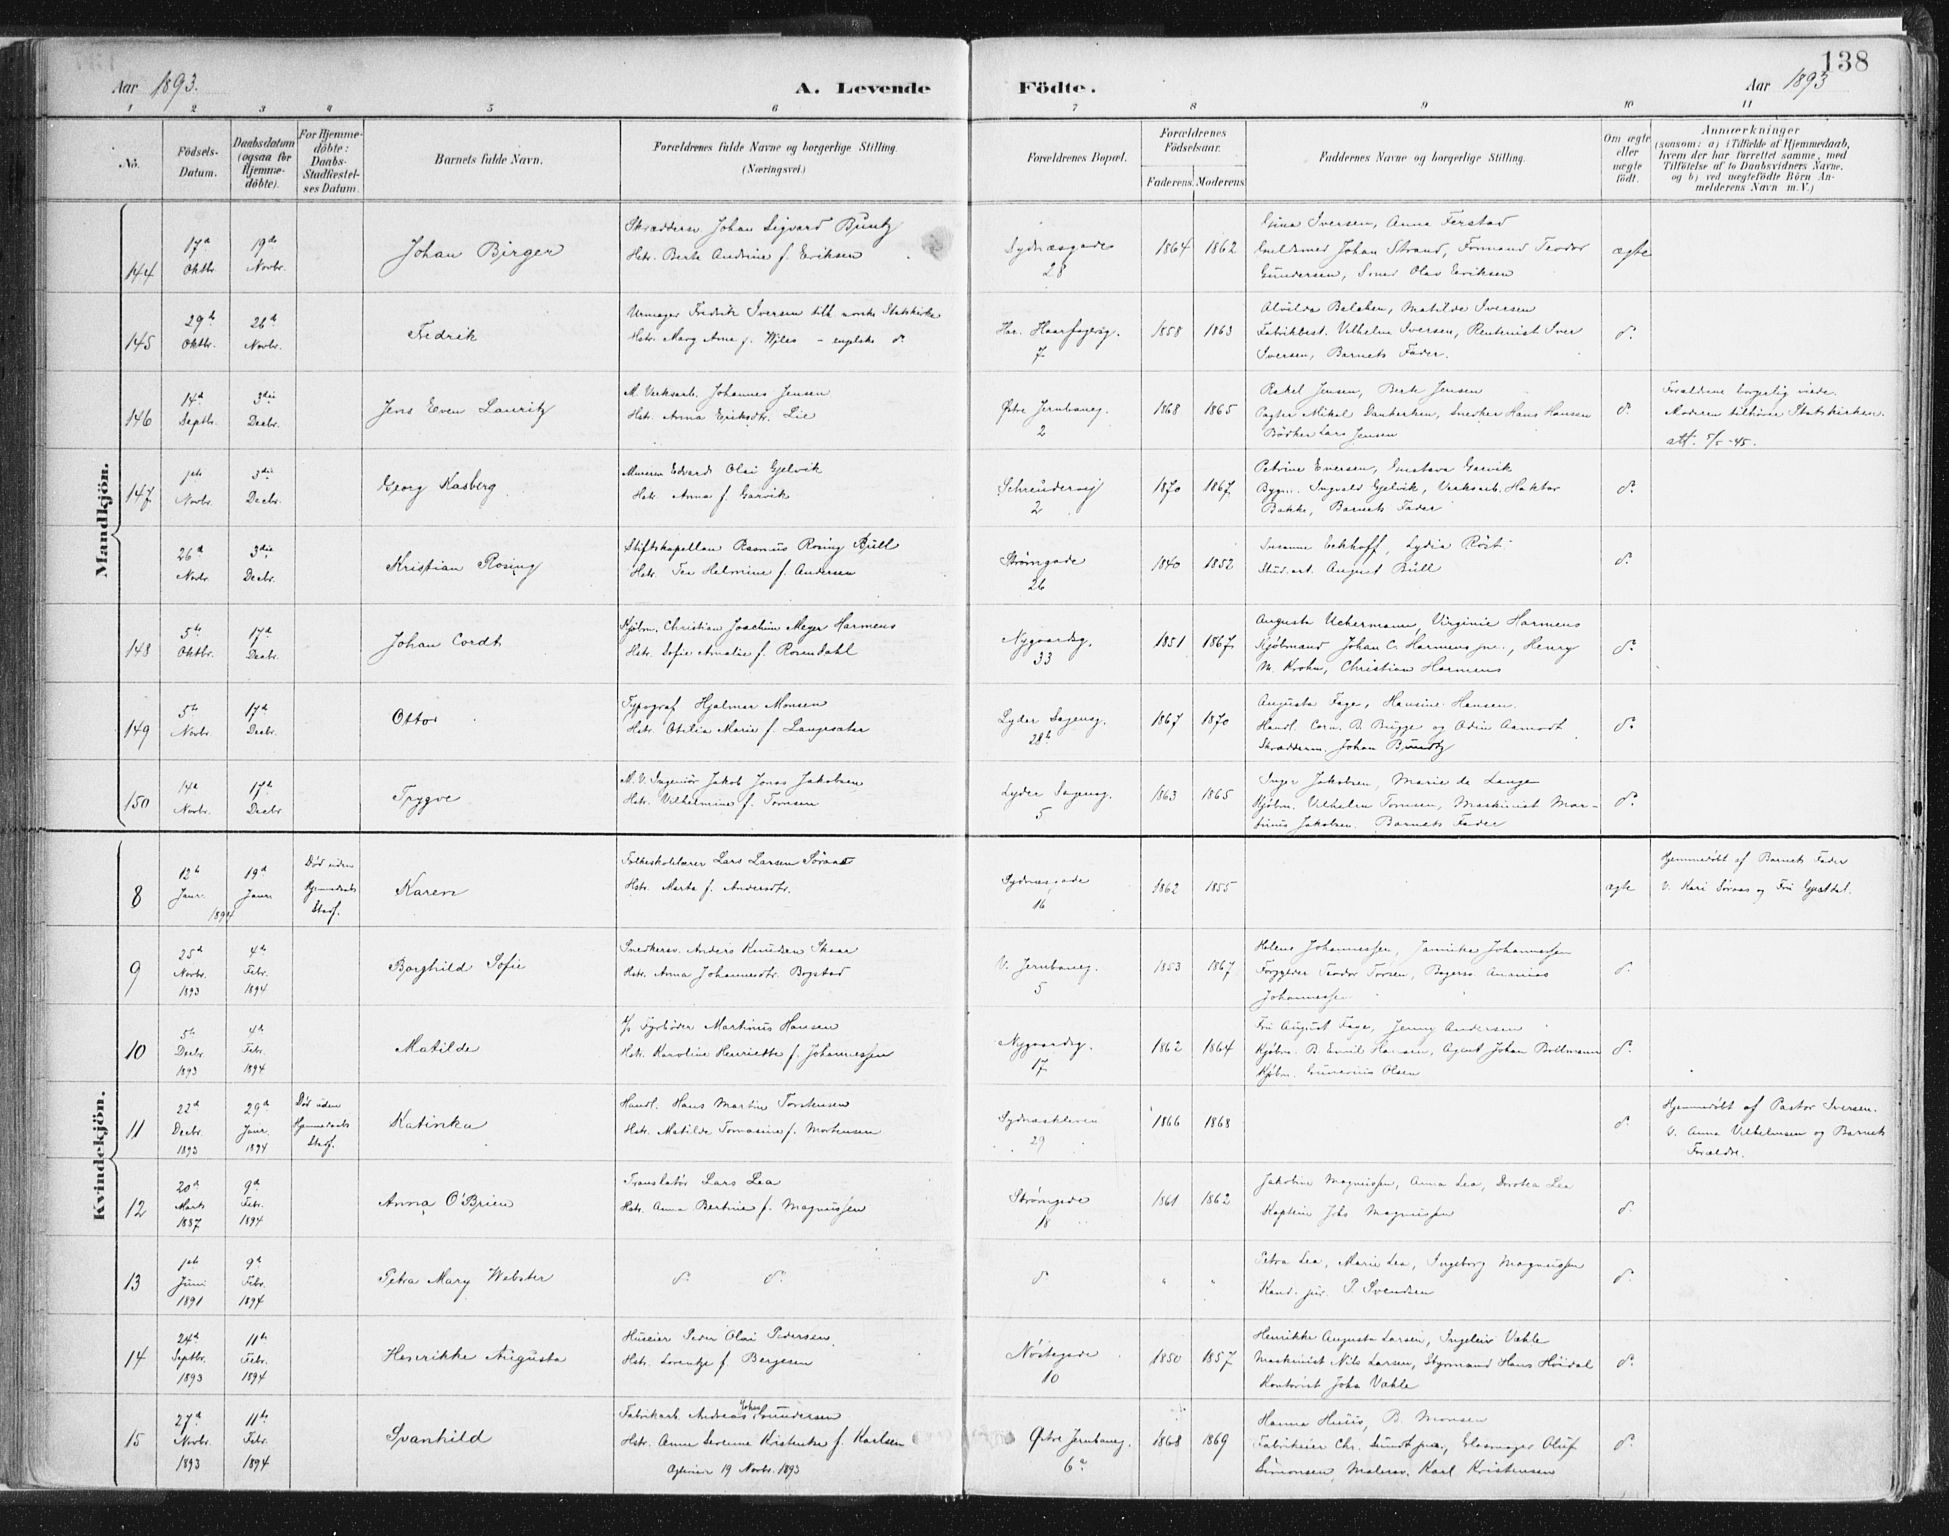 138
Aar 1893.
A. Levende
Födte.
Aar 1893
1 2 3 4 5 6 7 8 9 10 11
No.
Födsels-Datum.
Daabsdatum (ogsaa for Hjemme-döbte).
For Hjemme-döbte: Daabs-Stadfæstel-ses Datum.
Barnets fulde Navn.
Forældrenes fulde Navne og borgerlige Stilling. (Næringsvei.)
Forældrenes Bopæl.
Forældrenes Födselsaar.
Faderens. Moderens.
Faddernes Navne og borgerlige Stilling.
Om ægte eller uægte födt.
Anmærkninger
(saasom: a) i Tilfælde af Hjemmedaab, hvem der har forrettet samme, med Tilföielse af to Daabsvidners Navne. og b) ved uægtefödte Börn An-melderens Navn m. V.)
Mandkjön.
144 17d Oktbr. 19de Novbr. Johan Birger
Skrædderm Johan Sigvard Buntz
Hstr. Berte Andrine f. Eriksen
Sydnæsgade 28 1864 1862
Gina Iversen, Anna Ferstad
Guldsmed Johan Strand, Formand Teodor
Gundersen, Smed Olav Eriksen
ægte
145 29d Oktbr. 26d Novbr. Fredrik
Urmager Fredrik Iversen till norske Statskirke
Hstr. Mary Anne f. Wyles - engelske do
Har. Haarfagersg. 7 1858 1863
Alvilde Belehen, Matilde Iversen
Fabrikbest. Vilhelm Iversen, Rentenist Iver
Iversen, Barnets Fader.
do
146 14d Septbr. 3die Decbr. Jens Even Lauritz
M. Verksarb. Johannes Jensen
Hstr. Anna Eriksdtr. Lie
Østre Jernbaneg. 2 1868 1865
Rakel Jensen, Berte Jensen
Pagter Mikel Dankerken, Snedker Hans Hansen
Bödker Lars Jensen
do
Forældrene borgelig viede.
Moderen tilhører Statskirken.
att. 5/5-45.
147 1ste Novbr. 3die Decbr. Georg Kasberg
Murerm Edvard Olai Gjelvik
Hstr. Anna f. Garvik
Schreudervej 2 1870 1867
Petrine Eversen, Gustava Garvik
Bygm. Ingvald Gjelvik, Verksarb. Haktor
Bakke, Barnets Fader
do
26d Novbr. 3die Decbr. Kristian Rosing
Stiftskapellan Rasmus Rosing Bull
Hstr. Tea Helmine f. Andersen
Strømgade 26 1840 1852
Susanne Eckhoff, Lydia Röst
Stud. art. August Bull
do
148 5te Oktbr. 17d Decbr. Johan Cordt
Kjøbm. Christian Joachim Meyer Harmens
Hstr. Sofie Amalie f. Rosendahl
Nygaardsg. 33 1851 1867
Augusta Uchermann, Virginie Harmens
Kjöbmand Johan C. Harmens jnr., Henry
M. Krohn, Christian Harmens
do
149 5te Novbr. 17d Decbr. Otto
Typograf Hjalmar Monsen
Hstr. Otilia Marie f. Langesæter
Lyder Sagensg. 28b 1867 1870
Augusta Fage, Hansine Hansen.
Handl. Corn. B. Brügger og Odin Aamodt
Skrædderm. Johan Bundtz
do
150 14d Novbr. 17d Decbr Trygve
M. V. Ingeniør Jakob Jonas Jakobsen
Hstr. Vilhelmine f. Tornsen
Lyder Sagensg. 5 1863 1865
Inger Jakobsen, Marie de Lange
Kjöbm. Vilhelm Tornsen, Maskinist Mar-
tinus Jakobsen. Barnets Fader
do
Kvindekjön.
8 12te Janr. 1894 19d Janr. Död uden Hjemmedaabs Stadf. Karen
Folkeskolelærer Lars Larsen Söraas
Hstr. Marta f. Andersdtr.
Sydnæsgade 16 1862 1855
ægte
Hjemmedöbt af Barnets Fader
V. Kari Söraas og Fru Gjestdal.
9 25d Novbr. 1893 4de Febr. 1894 Borghild Sofie
Snedkersv. Anders Knudsen Skaar
Hstr. Anna Johannesdtr. Bogstad
V. Jernbaneg. 5 1853 1867
Helene Johannessen, Jannike Johannessen
Forgylder Teodor Torsen, Bagersv. Ananias
Johannessen
do
10 5te Decbr. 1893 4de Febr. 1894 Matilde
Fyrböder Martinus Hansen
Hstr. Karoline Henriette f. Johannessen
Nygaardsg. 17 1862 1864
Fru August Fage, Jenny Andersen
Kjöbm. B. Emil Hansen, Agent Johan Boltmann
Kjöbm. Gunerius Olsen
do
11 22d Decbr. 1893 29d Janr. 1894 Död uden Hjemmedaabs Stadf. Katinka
Handl. Hans Martin Torstensen
Hstr. Matilde Tomasine f. Mortensen
Sydnæskleven 29 1866 1868
do
Hjemmedöbt af Pastor Iversen.
V. Anna Vilhelmsen og Barnets
Forældre.
12 20d Marts 1887 9d Febr. 1894 Anna O'Brien
Translatör Lars Lea
Hstr. Anna Bertine f. Magnussen
Strömgade 18 1861 1862
Jakobine Magnussen, Anna Lea, Dorotea Lea
Kaptein Johs Magnussen
do
13 1ste Juni 1891 9d Febr. 1894 Petra Mary Webster
do do
do " "
Petra Lea, Marie Lea, Ingeborg Magnussen
Kand. jur. P. Svendsen
do
14 24d Septbr. 1893 11te Febr. 1894 Henrikke Augusta
Huseier Peder Olai Pedersen
Hstr. Lorentze f. Bergesen
Nöstegade 10 1850 1857
Henrikke Augusta Larsen, Ingeleiv Vækle
Maskinist Nils Larsen, Styrmand Hans Höidal
Kontorist Johs Vækle
do
15 27d Novbr. 1893 11te Febr. 1894 Svanhild
Fabrikarb. Andreas Johan Gundersen
Hstr. Anne Severine Kristentse f. Karlsen
19 Novbr. 1893
Østre Jernbaneg. 6a 1868 1869
Hanna Huus, B. Monsen
Fabrikeier Chr. Sundt jnr., Glasmager Oluf
Simonsen, Malersv. Karl Kristensen
do